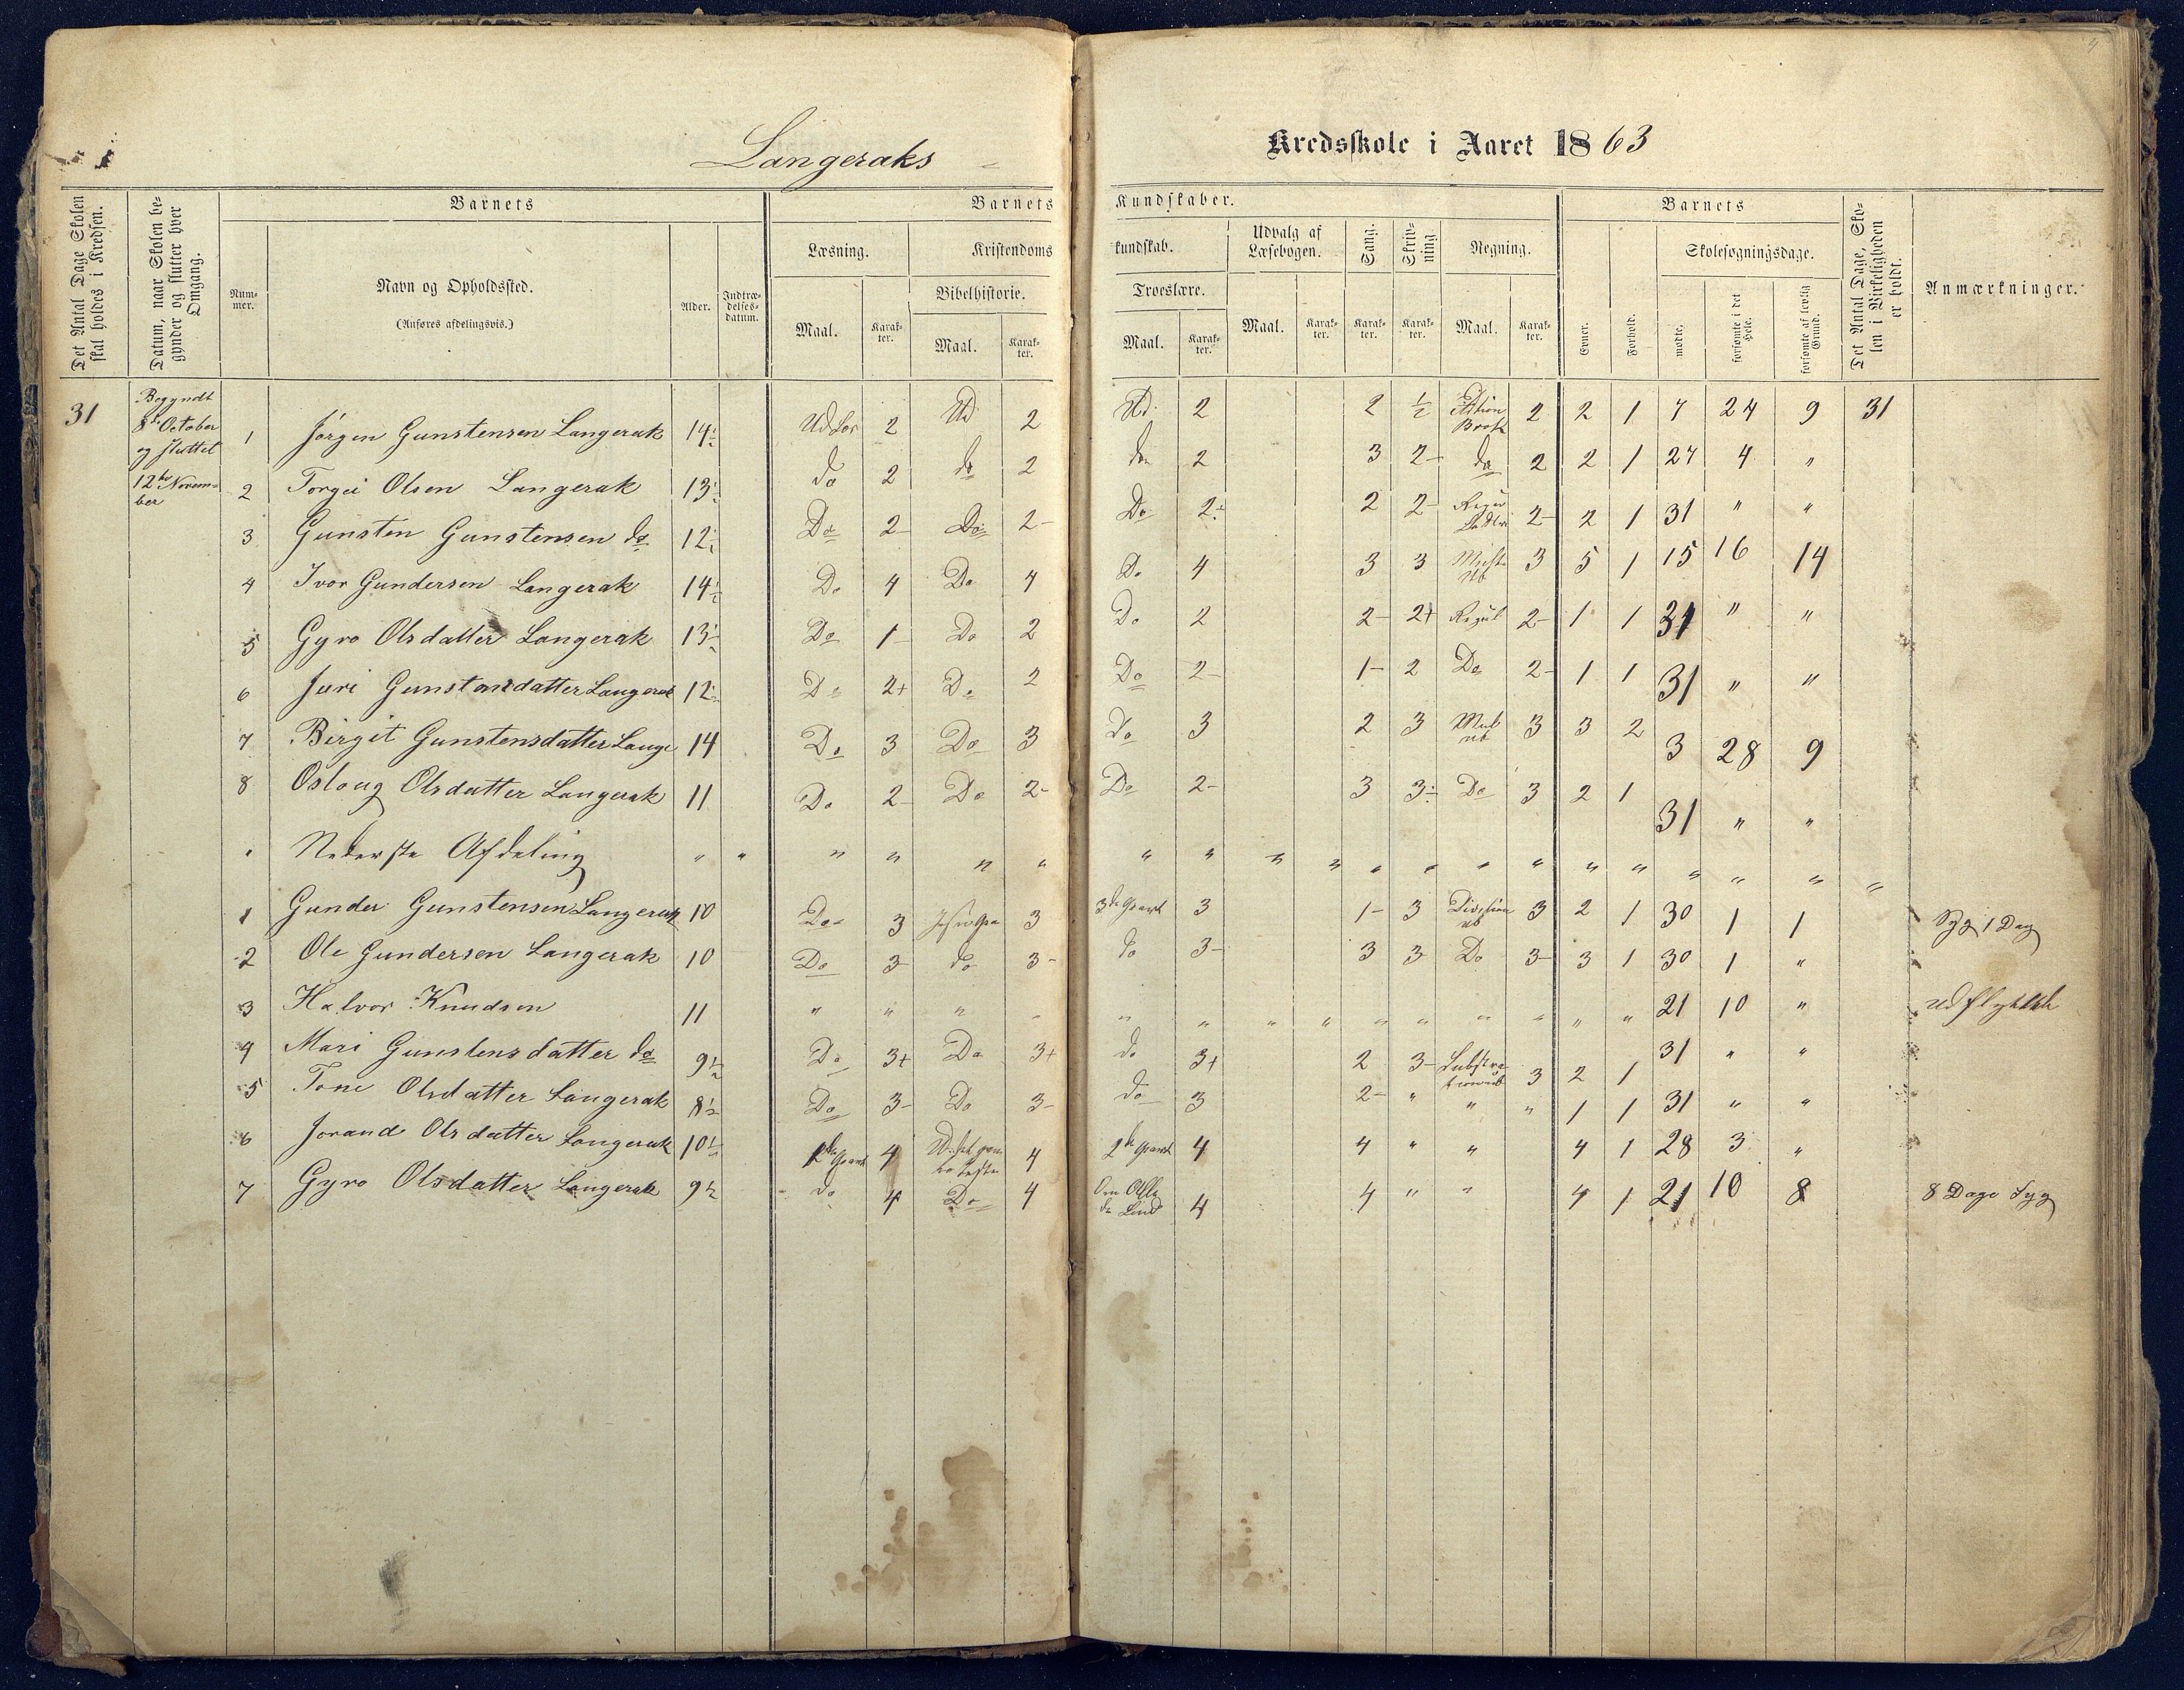 Langeraks Kredsskole i Aaret 1863
Det Antal Dage Skolen skal holdes i Kredsen.
Datum, naar Skolen begynder og slutter hver Omgang.
Barnets
Nummer.
Navn og Opholdssted.
(Anføres afdelingsvis.)
Alder.
Indtrædelsesdatum.
Barnets Kundskaber.
Læsning.
Maal.
Karakter.
Kristendomskundskab.
Bibelhistorie.
Maal.
Karakter.
Troeslære.
Maal.
Karakter.
Udvalg af Læsebogen.
Maal.
Karakter.
Sang.
Karakter.
Skrivning.
Karakter.
Regning.
Maal.
Karakter.
Barnets
Evner.
Forhold.
Skolesøgningsdage.
mødte.
forsømte i det Hele.
forsømte af lovlig Grund.
Det Antal Dage, Skolen i Virkeligheden er holdt.
Anmærkninger.
31
Begyndt
8de October
og sluttet
12te Novem-
ber
1 Jørgen Gunstensen Langerak 14½ 2 Ud 2 Ud. 2 2 ½ Brøk 2 2 1 7 24 9 31
2 Torgei Olsen Langerak 13½ do 2 do 2 do 2 3 2- do 2 2 1 27 4 "
3 Gunsten Gunstensen do 12½ Do 2- Do 2- Do 2÷ 2 2- 2- 2 1 31 " "
4 Ivor Gundersen Langerak 14½ Do 4 Do 4 Do 4 3 3 3 5 1 15 16 14
5 Gyro Olsdatter Langerak 13½ Do 1- Do 2 Do 2 2- 2+ Regul 2- 1 1 31 " "
6 Juri Gunstensdatter Langerak 12½ Do 2+ Do 2 Do 2- 1- 2 Do 2- 1 1 31 " "
7 Birgit Gunstensdatter Lange 14 Do 3 Do 3 Do 3 2 3 Mul ub 3 3 2 3 28 9
8 Oslaug Olsdatter Langerak 11 Do 2- Do 2- Do 2- 3 3÷ Do 3 2 1 31 " "
" Nederste Afdeling " " " " " " " " " " " " " " " " " " " "
1 Gunder Gunstensen Langerak 10 Do 3 3 3de Part 3 1- 3 Division ub 3 2 1 30 1 1 Syg 1 Dag
2 Ole Gundersen Langerak 10 Do 3- do 3- do 3- 3 3- Do 3- 3 1 30 1 "
3 Halvor Knudsen 11 " " " " " " " " " " " " " " 21 10 " udflyttede
4 Mari Gunstensdatter do 9½ Do 3+ Do 3+ do 3+ 2 3- 3 2 1 31 " "
5 Tone Olsdatter Langerak 8½ Do 3- Do 3- do 3 2- " " " 1 1 31 " "
6 Jorand Olsdatter Langerak 10½ Part 4 4 2de Part 4 4 " " 4 1 28 3 "
7 Gyro Olsdatter Langerak 9½ do 4 Do 4 4 4 " " 4 1 21 10 8 8 Dage Syg